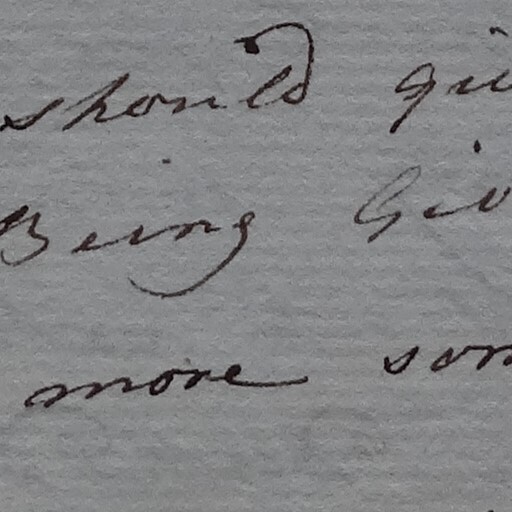 should gi
Being Giv
more som